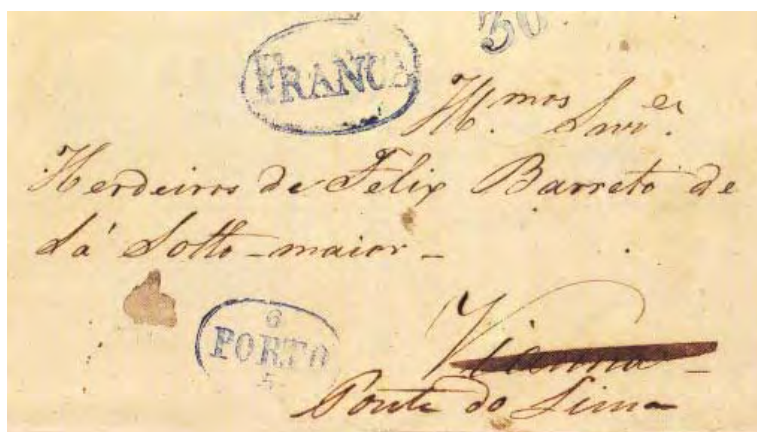 30
FRANCA
Ill.mos Snr.es
Herdeiros de Felix Barreto de
Sá Sotto-maior-
6
PORTO
5
Vianna-
Ponte do Lima